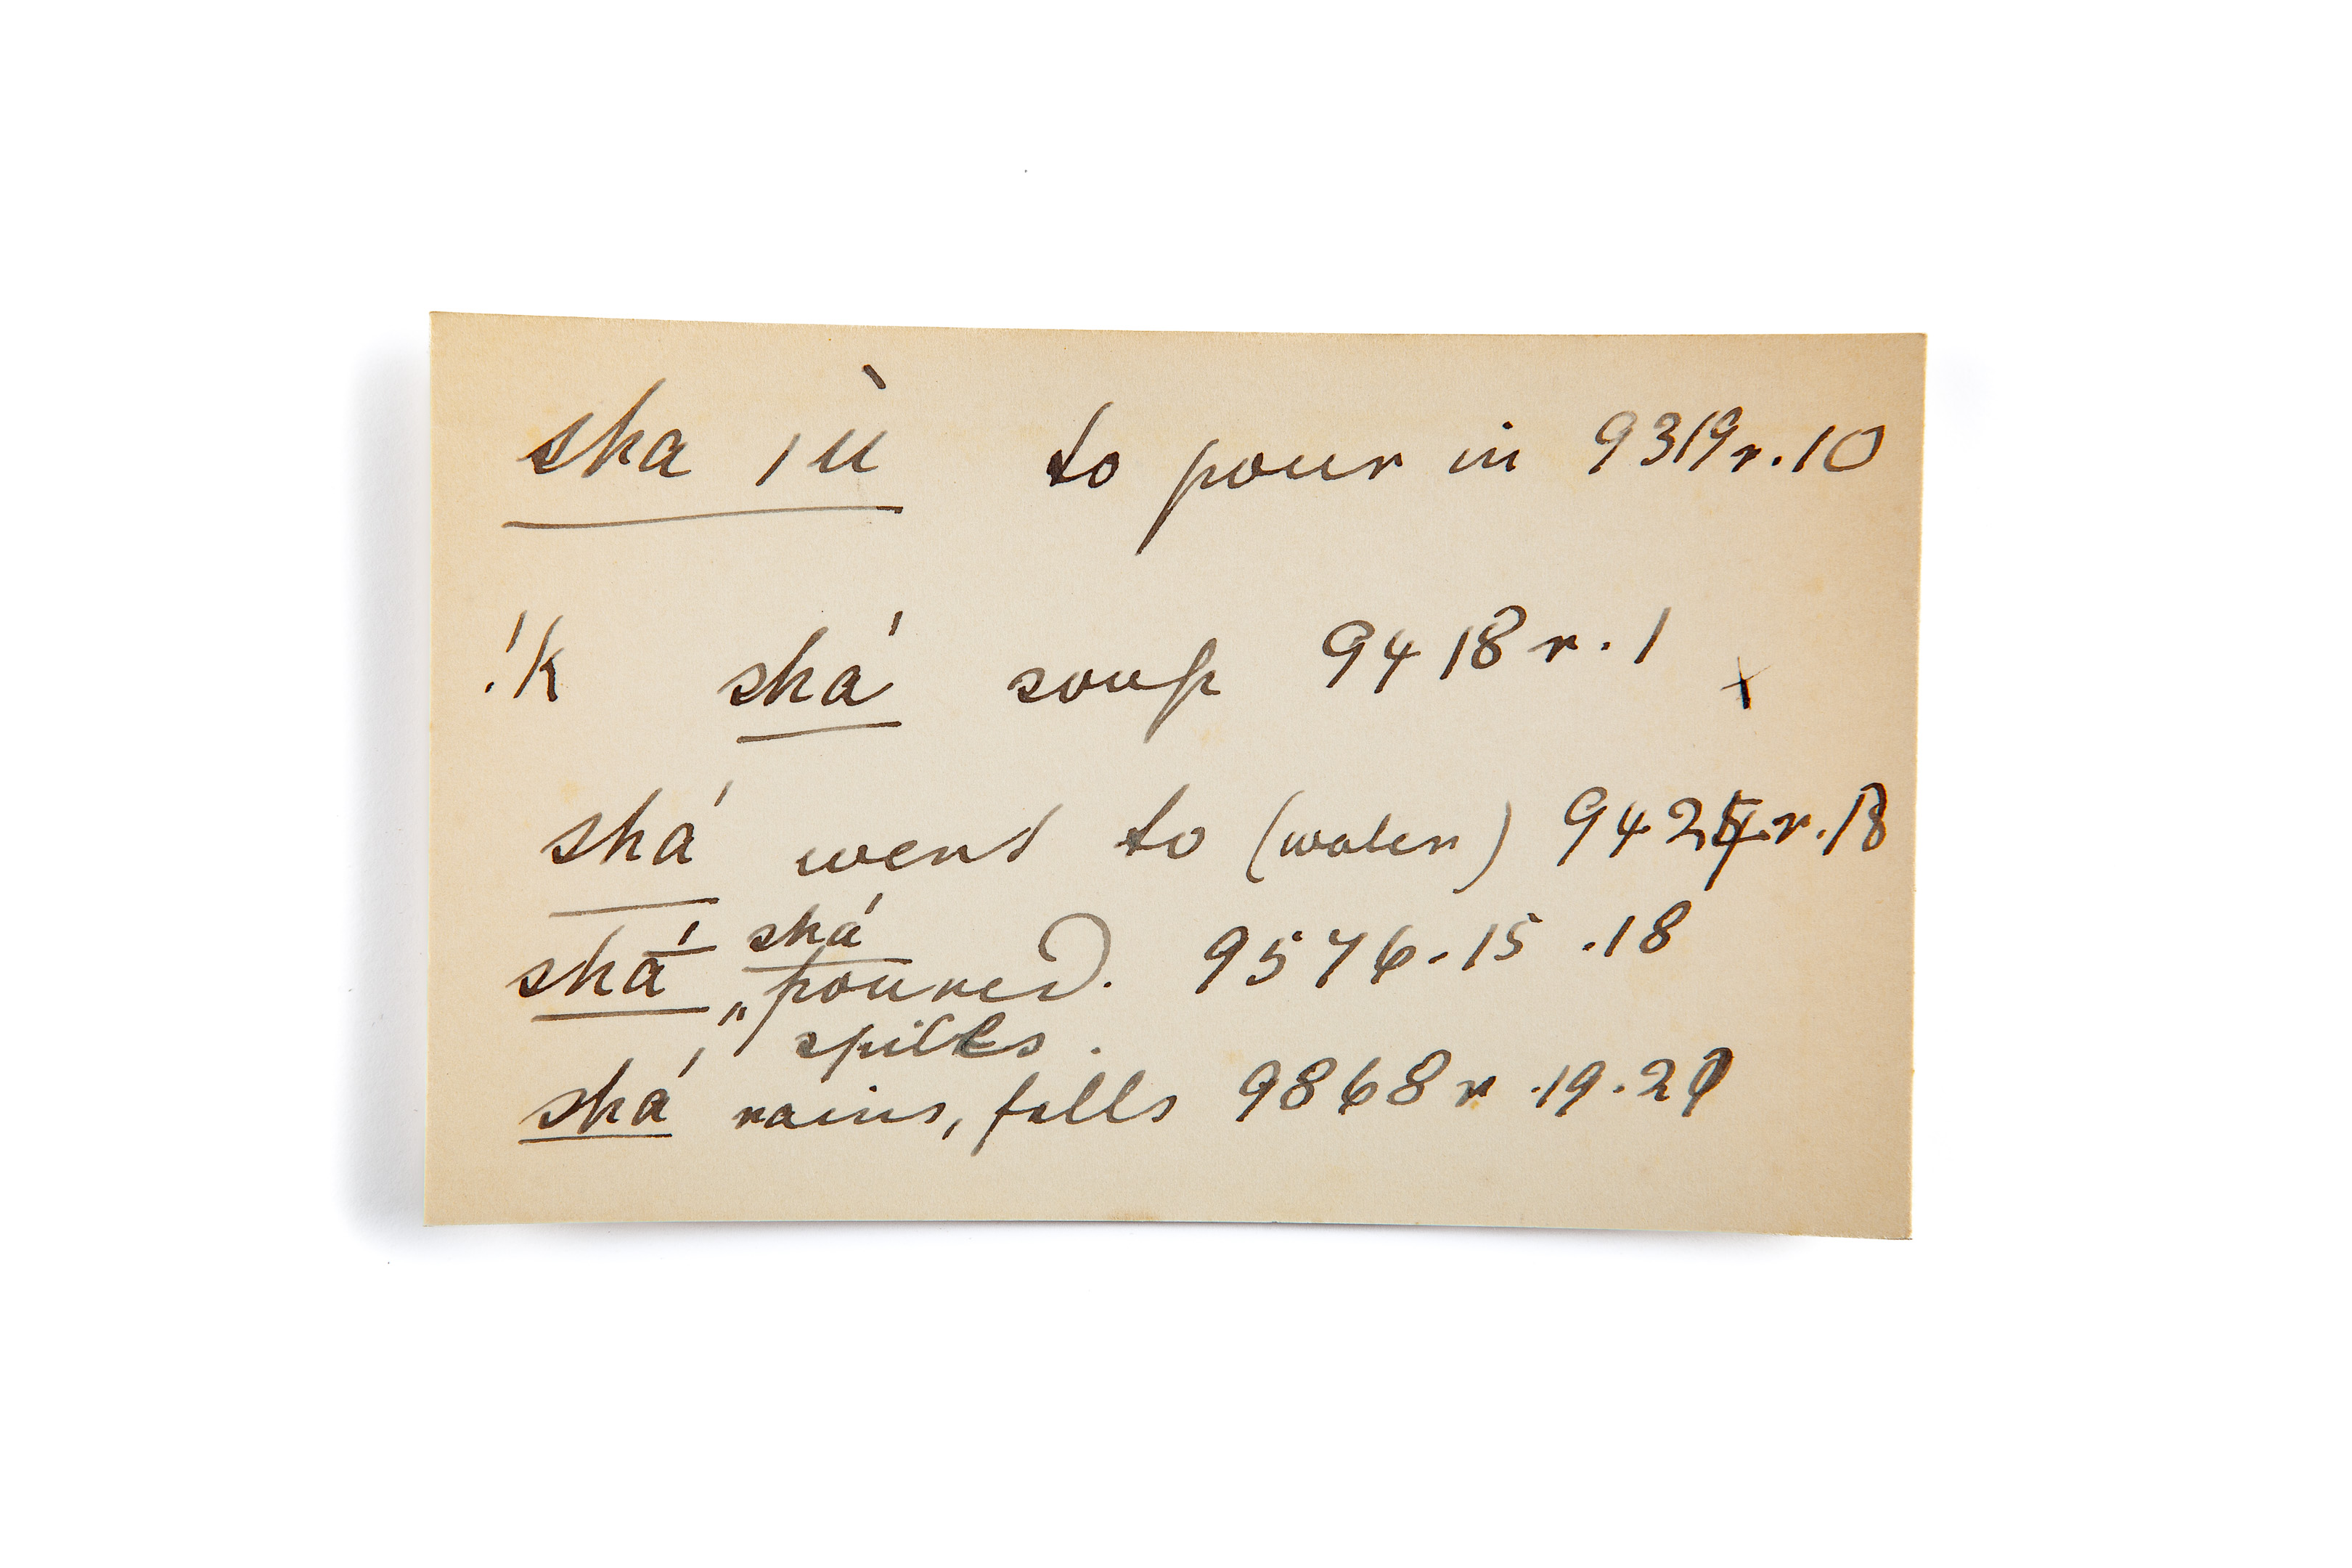 sha /ù to pour in 9319r.10
!k shá soup 9418r.1 x
shá went to (water) r.18
shá shá
" poured. 9576.15 .18
spills.
shá rains, falls 9868r.19.